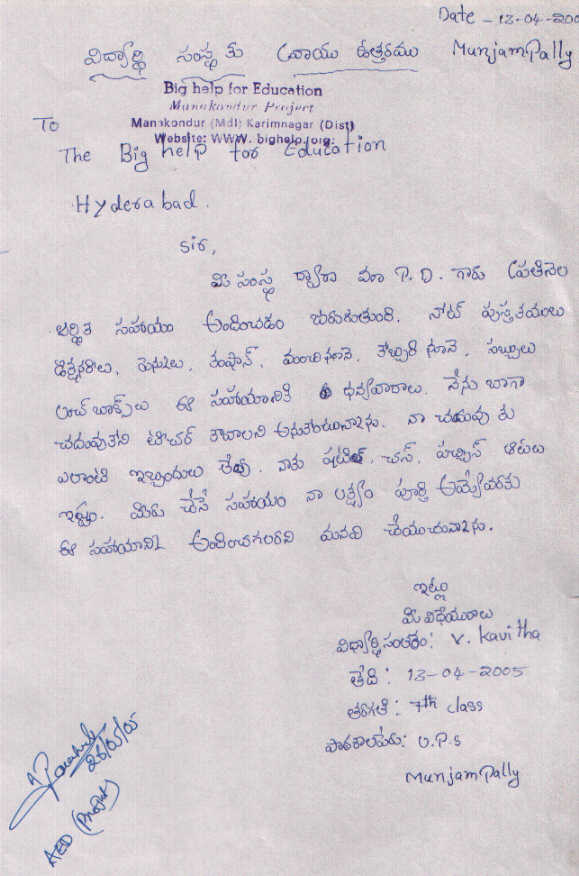 Date - 13-04-200
విద్యార్థి సంస్థకు వ్రాయు ఉత్తరము MunjamPally
Big help for Education
Manakondur Project
Manakondur (Mdl) Karimnagar (Dist)
Website: WWW. bighelp.org.
To
The Big help for Education
Hyderabad.
Sir,
మీ సంస్థ ద్వారా మా P. D. గారు ప్రతినెల
ఆర్థిక సహాయం అందించడం జరుగుతుంది. నోట్ పుస్తకములు
డిక్షనరీలు, పెన్నులు, షాంపూ, మంచి నూనె, కొబ్బరి నూనె, సబ్బులు
లంచ్ బాక్స్‌లు ఈ సహాయానికి ధన్యవాదాలు. నేను బాగా
చదువుకొని టీచర్ కావాలని అనుకుంటున్నాను. నా చదువు కు
ఎలాంటి ఇబ్బందులు లేవు. నాకు షటిల్, చెస్, ఆటలు
ఇష్టం. మీరు చేసే సహాయం నా లక్ష్యం పూర్తి అయ్యేవరకు
ఈ సహాయాన్ని అందించగలరని మనవి చేయుచున్నాను.
ఇట్లు
మీ విధేయురాలు
విద్యార్థి సంతకం: V. Kavitha
తేది: 13-04-2005
తరగతి: 7th class
పాఠశాలపేరు: U.P.S
MunjamPally
26/05/05
AED (Project)